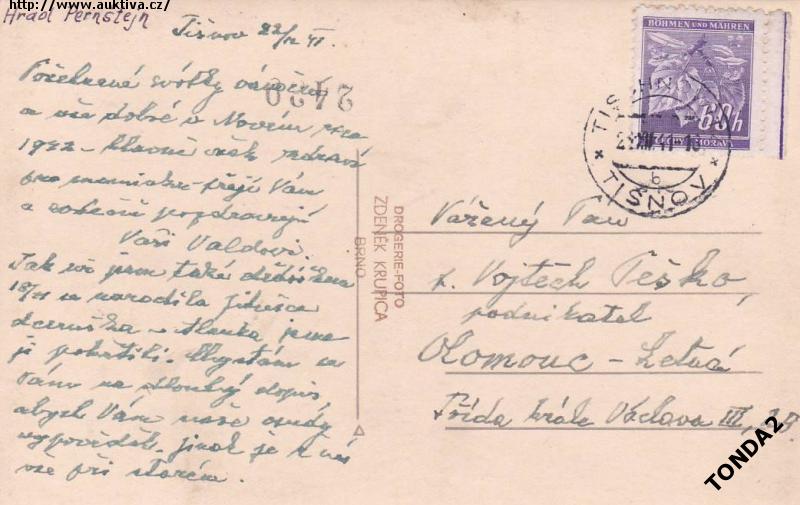 http://www.auktiva.cz/
Hrad Pernštejn
Tišnov 22/12 41
Požehnané svátky vánoční
a vše dobré v Novém roce
1942 - hlavně však zdraví
pro maminku - přejí Vám
a srdečně pozdravují
Vaši Valdovi.
Jak víš jsem také dědečkem
18/11 se narodila Jitušce
dceruška - Alenka jsme
ji pokřtili. Chystám se
Vám na dlouhý dopis,
abych Vám naše osudy
vypověděl. jinak je u nás
vše při starém.
2420
DROGERIE-FOTO
ZDENĚK KRUPICA
BRNO
BÖHMEN UND MÄHREN
60h
MORAVA
TISCHNOWITZ
XII 41
b
TIŠNOV
Vážený Pan
p. Vojtěch Peško,
podnikatel
Olomouc - Letná
Třída krále Václava III,
TONDA2